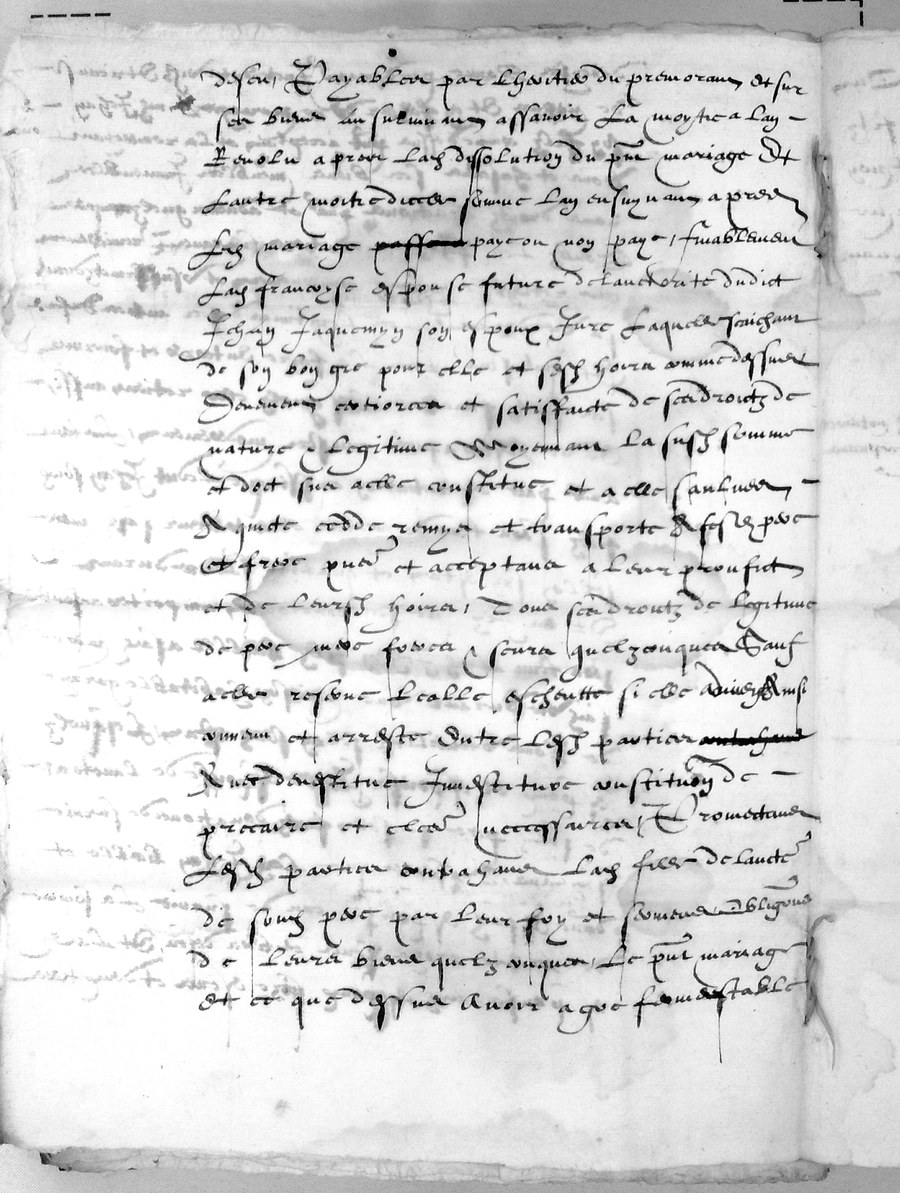 descu, Payables par lheritier du premorant et sur
ses biens au survivant assavoir La moytie a lan
Revolu apres lad dissolution du pnt mariage Et
Lautre moitie dicelle somme lan ensuyvant apres
Led mariage paye ou non paye, finablement
Lad francoyse espouse future de lauctorite dudict
Jehan Jaquemyn son espoux Jure Laquelle saichant
de son bon gre pour elle et sesd hoirs comme dessus
devement certioree et satisfaicte de ses droictz de
nature & legitime Moyennant la susd somme
et doct sus a elle constitue et a elle saulvee
A quicte cedde remys et transporte A sesd pere
et frere pntz et acceptans a leur prouffict
et de leursd hoirs, Tous ses droictz de legitime
de pere mere freres & seurs quelzconques Sauf
a elle reserve lealle escheutte si elle advient Ainsi
convenu et arreste Entre lesd parties
Avec devestiture Investiture constitution de
precaire et clers necessaires, Promectans
Lesd parties contrahans Lad fille de laucte
de sond pere par leur foy et serment obligons
de leurs biens quelzconques, Le pnt mariage
et ce que dessus Avoir a gre ferme estable